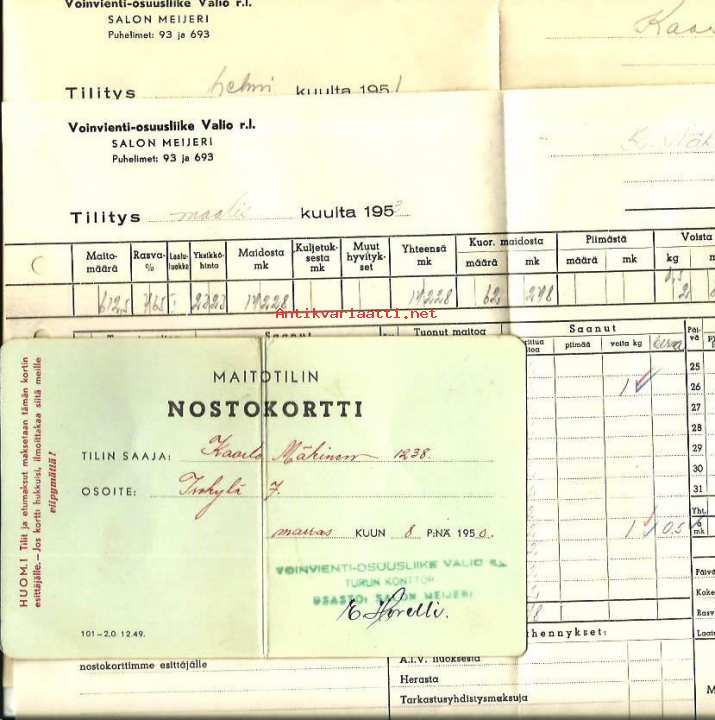 Voinvienti-osuusliike Valio r.l.
SALON MEIJERI
Puhelimet: 93 ja 693
Tilitys helmi kuulta 1951
Voinvienti-osuusliike Valio r.l.
SALON MEIJERI
Puhelimet: 93 ja 693
Tilitys maalis kuulta 195
Maito- määrä Rasva- % Laatu- luokka Yksikkö- hinta Maidosta mk Kuljetuk- sesta mk Muut hyvityk- set Yhteensä mk Kuor. maidosta määrä mk Piimästä määrä mk Voista kg
612,5 23,23 14228 14228 62 248 2
Antikvariaatti.net
Saanut Tuonut maitoa Saanut Päi- vä
piimää voita kg
25
26
27
28
29
30
31
Yht.
à mk
MAITOTILIN
NOSTOKORTTI
TILIN SAAJA: Kaarlo Mäkinen 1238
OSOITE: Isokylä 7.
marras KUUN 8 P:NÄ 1950.
VOINVIENTI-OSUUSLIIKE VALIO r.l.
TURUN KONTTORI
OSASTO: SALON MEIJERI
101–2.0 12.49.
HUOM.! Tilit ja etumaksut maksetaan tämän kortin
esittäjälle. – Jos kortti hukkuisi, ilmoittakaa siitä meille
viipymättä!
nostokorttimme esittäjälle
hennykset:
A.I.V. liuoksesta
Herasta
Tarkastusyhdistysmaksuja